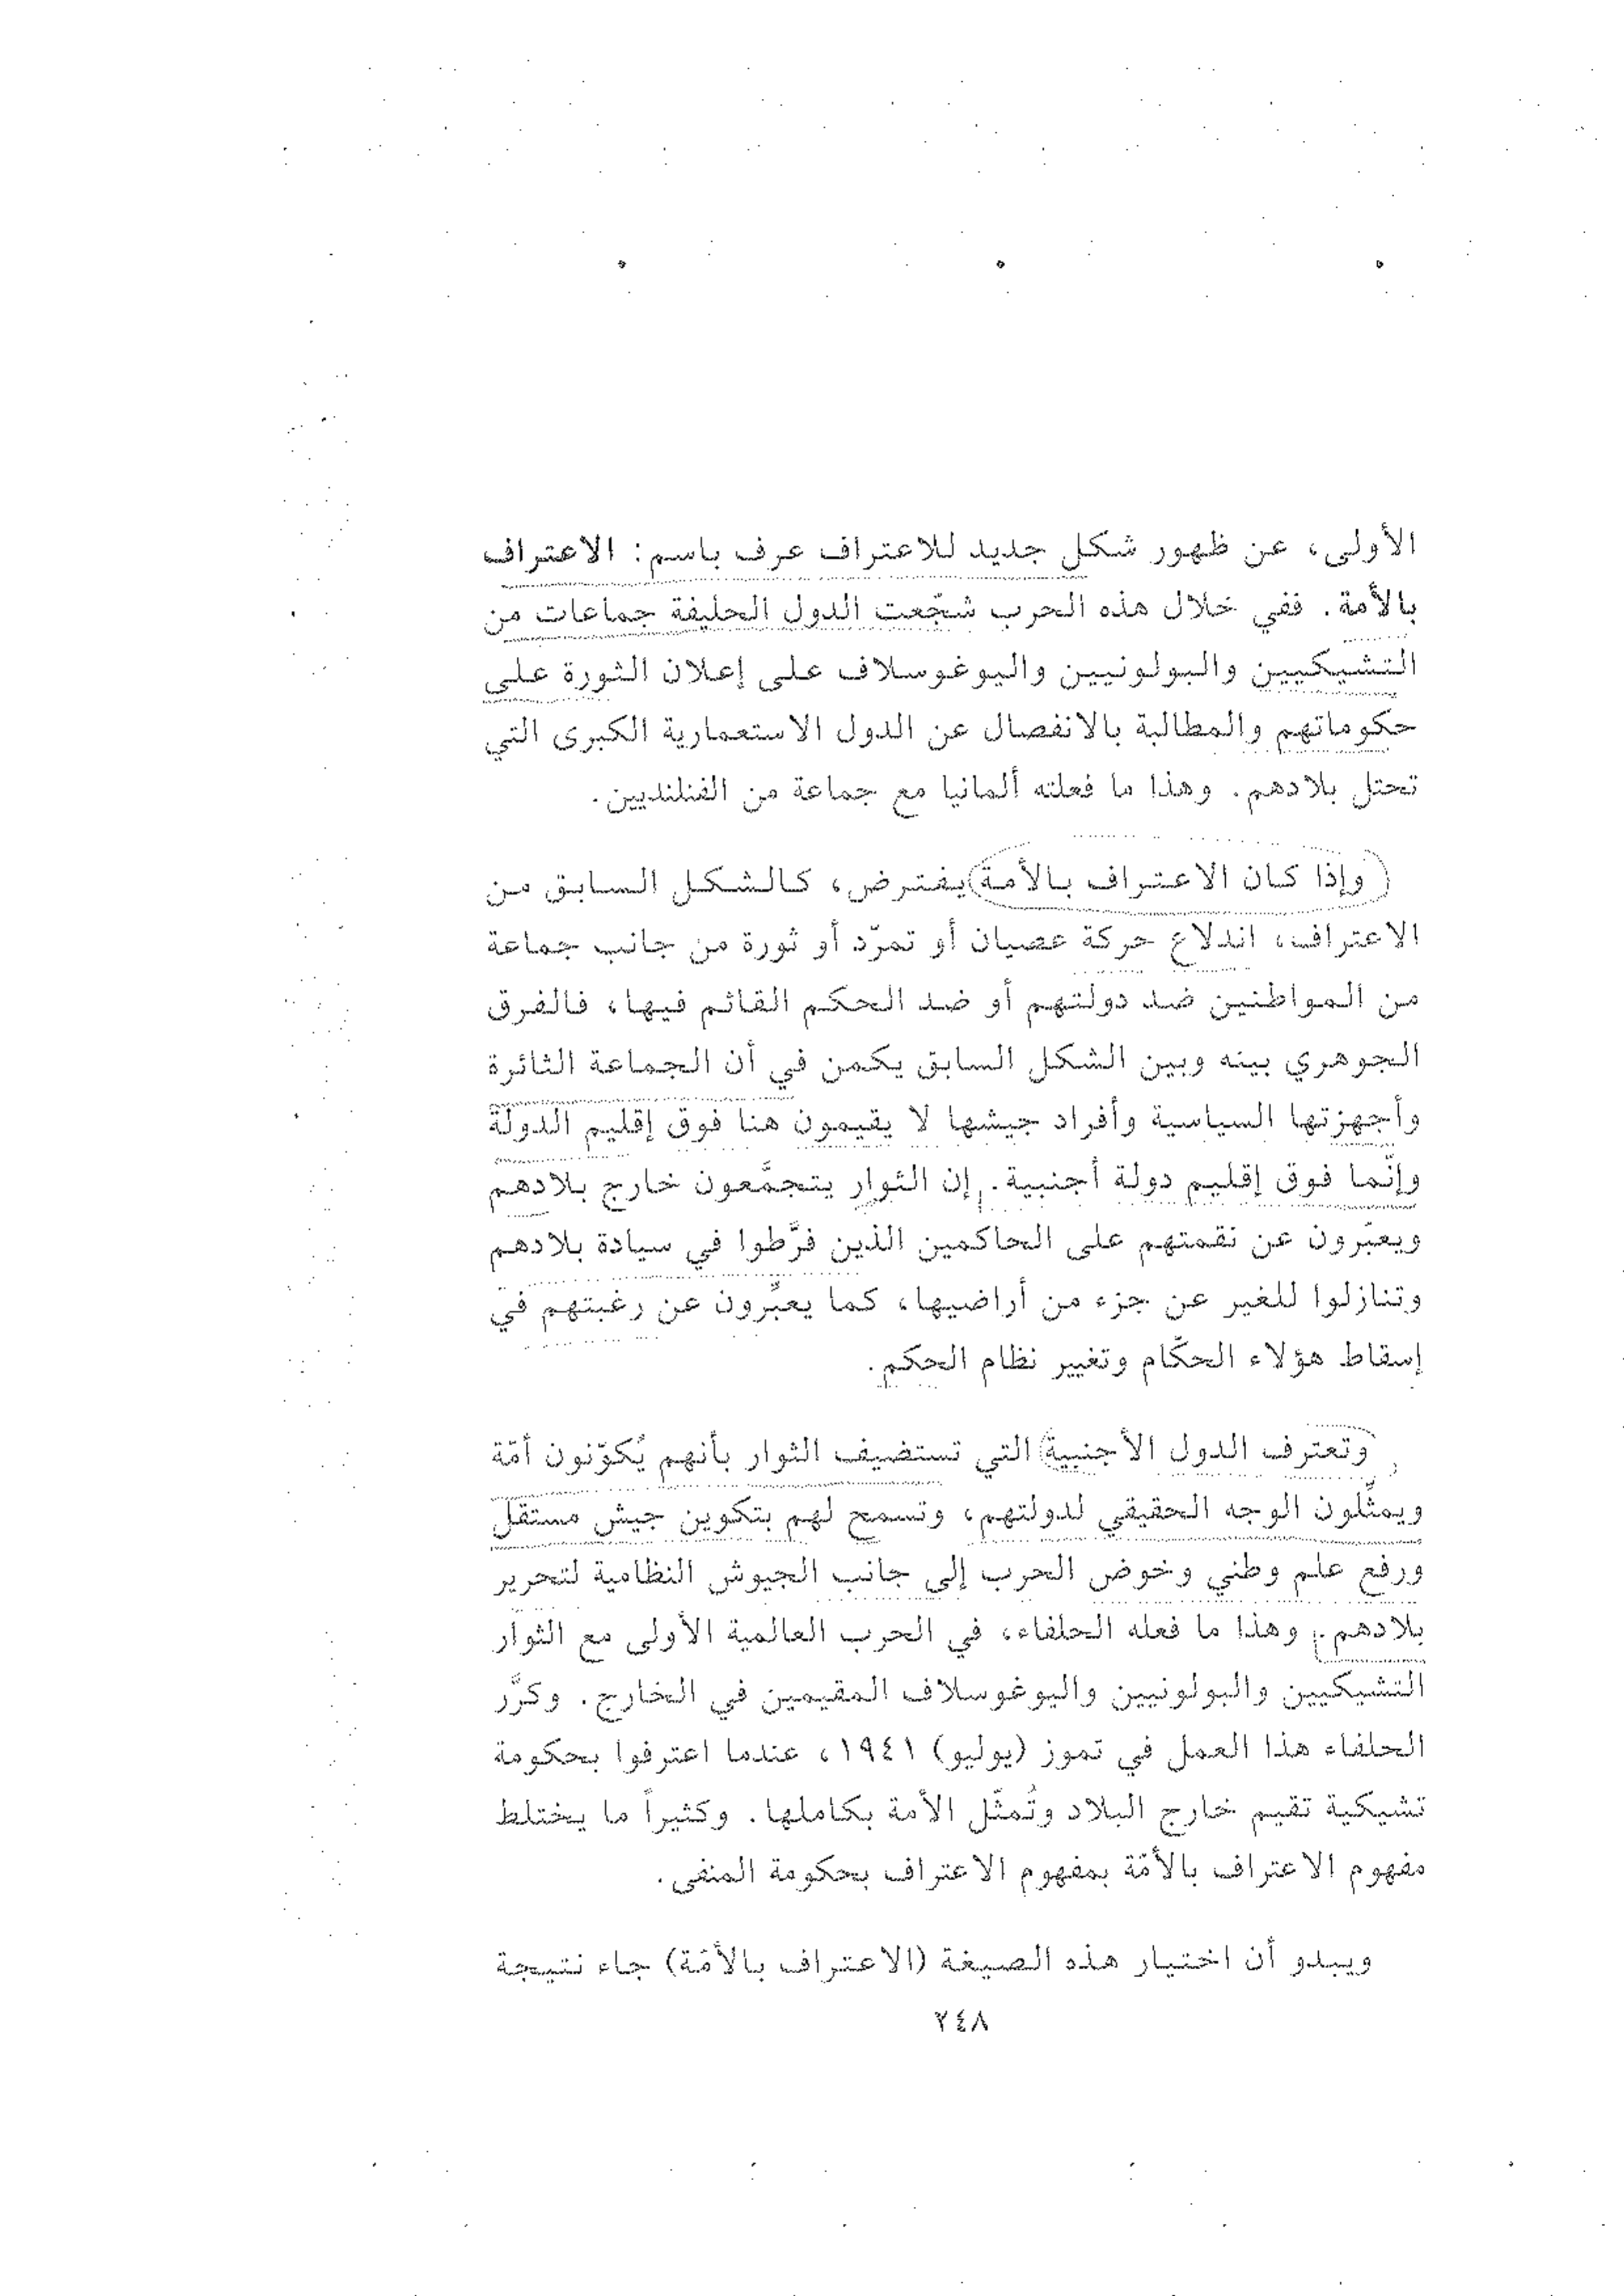 الأولى، عن ظهور شكل جديد للاعتراف عرف باسم: الاعتراف
بالأمة. ففي خلال هذه الحرب شجّعت الدول الحليفة جماعات من
التشيكيين والبولونيين واليوغوسلاف على إعلان الثورة على
حكوماتهم والمطالبة بالانفصال عن الدول الاستعمارية الكبرى التي
تحتل بلادهم. وهذا ما فعلته ألمانيا مع جماعة من الفنلنديين.
(وإذا كان الاعتراف بالأمة) يفترض، كالشكل السابق من
الاعتراف، اندلاع حركة عصيان أو تمرّد أو ثورة من جانب جماعة
من المواطنين ضد دولتهم أو ضد الحكم القائم فيها، فالفرق
الجوهري بينه وبين الشكل السابق يكمن في أن الجماعة الثائرة
وأجهزتها السياسية وأفراد جيشها لا يقيمون هنا فوق إقليم الدولة
وإنّما فوق إقليم دولة أجنبية. إن الثوار يتجمَّعون خارج بلادهم
ويعبّرون عن نقمتهم على الحاكمين الذين فرَّطوا في سيادة بلادهم
وتنازلوا للغير عن جزء من أراضيها، كما يعبِّرون عن رغبتهم في
إسقاط هؤلاء الحكّام وتغيير نظام الحكم.
وتعترف الدول الأجنبية التي تستضيف الثوار بأنهم يُكوّنون أمّة
ويمثِّلون الوجه الحقيقي لدولتهم، وتسمح لهم بتكوين جيش مستقل
ورفع علم وطني وخوض الحرب إلى جانب الجيوش النظامية لتحرير
بلادهم. وهذا ما فعله الحلفاء، في الحرب العالمية الأولى مع الثوار
التشيكيين والبولونيين واليوغوسلاف المقيمين في الخارج. وكرَّر
الحلفاء هذا العمل في تموز (يوليو) ١٩٤١، عندما اعترفوا بحكومة
تشيكية تقيم خارج البلاد وتُمثّل الأمة بكاملها. وكثيراً ما يختلط
مفهوم الاعتراف بالأمّة بمفهوم الاعتراف بحكومة المنفى.
ويبدو أن اختيار هذه الصيغة (الاعتراف بالأمّة) جاء نتيجة
٢٤٨